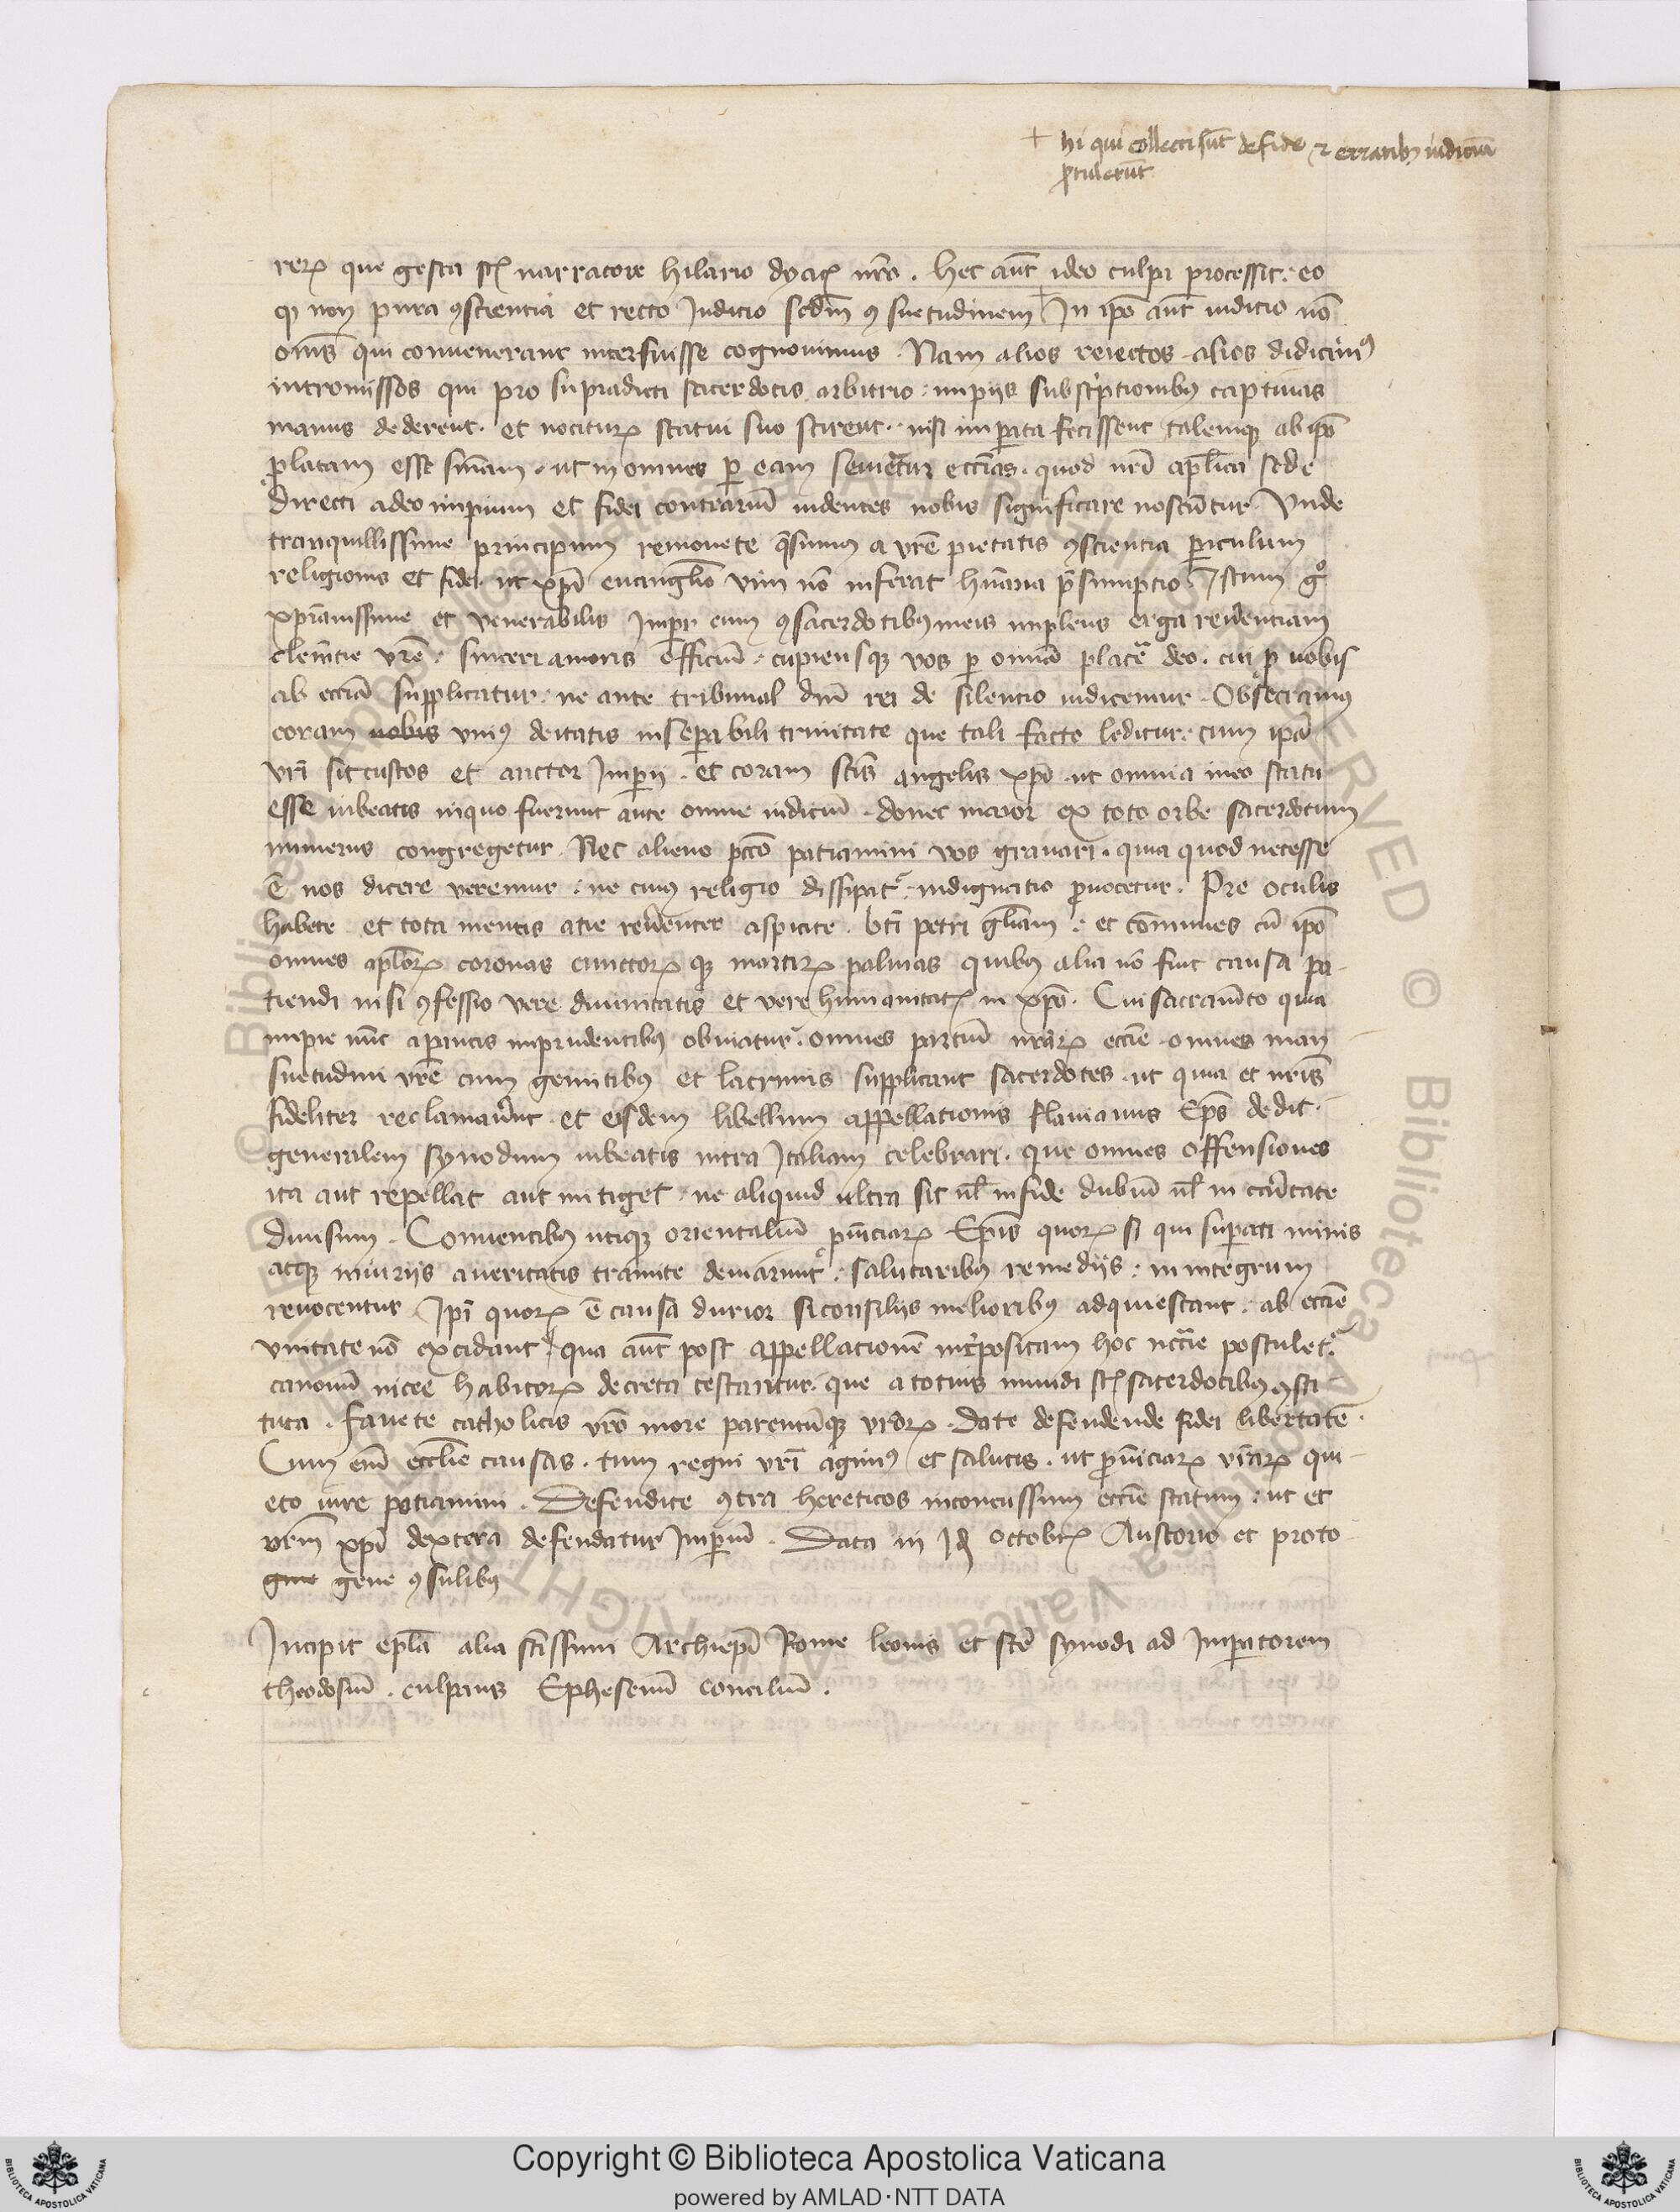 + hi qui collecti sūt de fide ⁊ erratibꝫ iudiciū
ꝓtulerūt
reꝝ que gesta sūt narratore hilario dyacꝭ nrō . hec aūt ideo culpa processit : eo
ꝙ non pura ꝯscientia et recto Judicio scdm̄ ꝯsuetudinem + In ipō aūt iudicio nō
om̄s qui convenerant interfuisse cognovimus . Nam alios reiectos . alios didicimꝰ
intromissos qui pro supradicti sacerdotis arbitrio : impijs subscͥptionibꝫ captivas
manus dederent . et nociturꝝ statui suo scirent . nisi imꝑata fecissent talemqꝫ ab ipō
ꝓlatam esse sn̄iam . ut in omnes ꝑ eam seviretur ecclīas . quod nrī apl̄ica sede
directi adeo impium et fidei contrariū uidentes nobis significare noscūtur . Vnde
tranquillissime principum remouete q̄sumus a vrē pietatis ꝯscientia ꝑiculum
religionis et fidei . ut xp̄i euangl̄io vim nō inferat hūana p̄sumptio . Istum gͦ
xp̄ianissime et venerabilis Impr̄ cum ꝯsacerdotibꝫ meis implens erga reuēentiam
clemn̄tie vrē . sinceri amoris officiū . cupiensqꝫ vos ꝑ omn̄ia placeͬ deo . cui ꝓ uobis
ab ecclīa supplicatur . ne ante tribunal dn̄i rei de silentio iudicemur . Obsecramꝰ
coram nobis vniꝰ deitatis inseꝑabili trinitate que tali facto leditur . cum ipā
vrī sit custos et auctor Imꝑij . et coram scīs angelis xp̄i . ut omnia ineo statu
esse iubeatis inquo fuerunt ante omne iudiciū . donec maior ex toto orbe sacerdotum
numerus congregetur . Nec alieno pccō patiamini vos gravari . quia quod necesse
ē nos dicere veremur . ne cuius religio dissipatͬ . indignatio ꝓvocetur . Pre oculis
habete et tota mentis acie reuēenter aspicite . btī petri gl̄iam . et cōmunes cū ipō
omnes apl̄orꝝ coronas cunctorꝝqꝫ martirꝝ palmas quibꝫ alia nō fuit causa pa-
tiendi nisi ꝯfessio vere divinitatis et vere humanitatꝭ in xp̄o . Cui sacramn̄to quia
impie nūc apaucis imprudentibꝫ obviatur . omnes partiū nrārꝝ ecclīe . omnes man
suetudini vrē cum gemitibꝫ et lacrimis supplicant sacerdotes . ut quia et nrīs
fideliter reclamarūt . et eisdem libellum appellationis flavianus Ep̄s dedit .
generalem synodum iubeatis intra Italiam celebrari . que omnes offensiones
ita aut repellat aut mitiget . ne aliquid ultra sit ul̄ in fide dubiū ul̄ in caritate
divisum . Convenientibꝫ utiqꝫ orientaliū ꝓvinciarꝝ Ep̄is quorꝝ si qui suꝑati minis
atqꝫ iniurijs averitatis tramite deviarunt . salutaribꝫ remedijs . in integrum
revocentur Ipī quorꝝ ē causa durior si consilijs melioribꝫ adquiescant . ab ecclīe
vnitate nō excidant . qua aūt post appellationē int̄positam hoc nccārie postuletͬ
canonū nicee habitorꝝ decreta testantur . que a totius mundi sūt sacerdotibꝫ ꝯsti
tuta . favete catholicis vrō more parentūqꝫ vrōrꝝ . date defendende fidei libertatē .
Cum enī ecclīe causas . tum regni vrī agimꝰ et salutis . ut ꝓvinciarꝝ vrārꝝ qui-
eto iure potiamini . Defendite ꝯtra hereticos inconcussum ecclīe statum . ut et
vrm̄ xp̄i dextera defendatur Imꝑiū . Data iij Id̄ octobrꝭ Austorio et proto-
gene gene ꝯsulibꝫ
Incipit epl̄a alia scīssimi Archiepī Rome leonis et scē synodi ad Imꝑatorem
theodosiū . culpans Ephesenū conciliū .
Copyright © Biblioteca Apostolica Vaticana
powered by AMLAD·NTT DATA